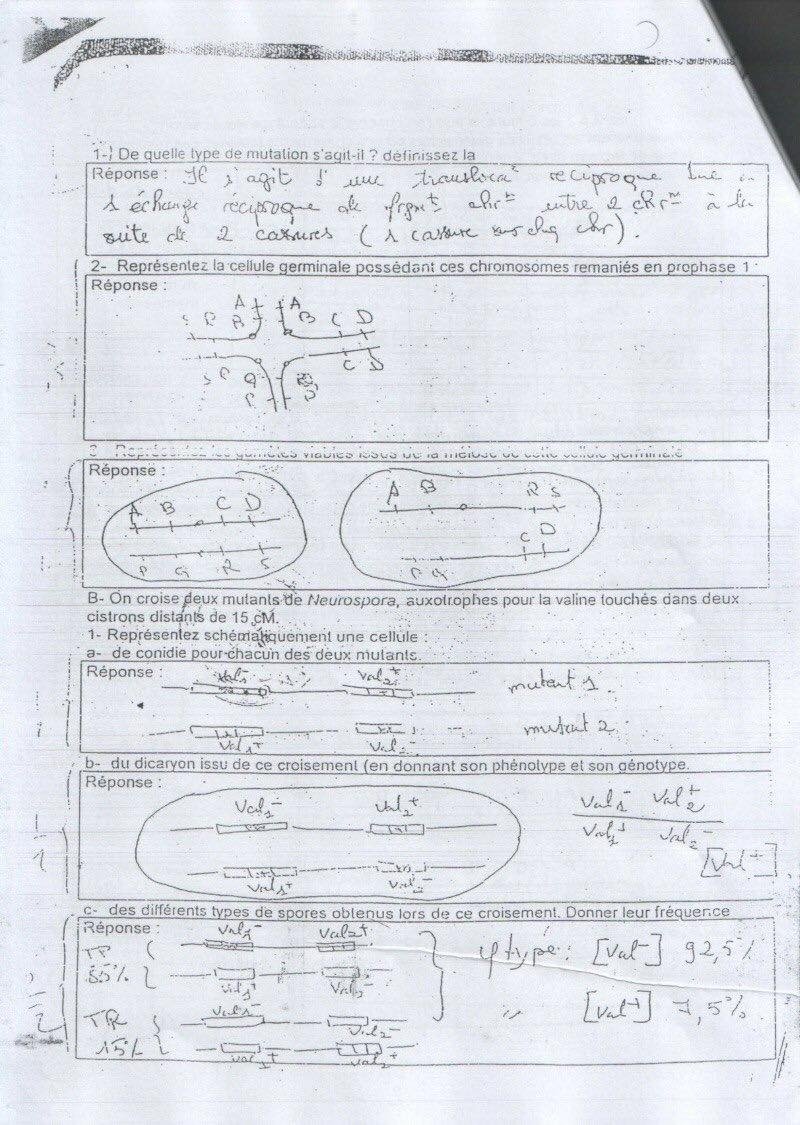 1-) De quelle type de mutation s'agit-il ? définissez la
Réponse : Il s'agit d'une translocaº reciproque
1 échange réciproque de frgmt chrᵐ entre 2 chrᵐ à la
suite de 2 cassures (1 cassure sur chq chr).
2- Représentez la cellule germinale possédant ces chromosomes remaniés en prophase 1
Réponse :
A A
R B B C D
C D
3- Représentez les gamètes viables issus de la méiose de cette cellule germinale
Réponse :
A B C D
P Q R S
A B R S
P Q C D
B- On croise deux mutants de Neurospora, auxotrophes pour la valine touchés dans deux
cistrons distants de 15 cM.
1- Représentez schématiquement une cellule :
a- de conidie pour chacun des deux mutants.
Réponse :
val₁⁻ val₂⁺ mutant 1.
val₁⁺ val₂⁻ mutant 2.
b- du dicaryon issu de ce croisement (en donnant son phénotype et son génotype.
Réponse :
val₁⁻ val₂⁺
val₁⁺ val₂⁻
val₁⁻ val₂⁺
val₁⁺ val₂⁻
[Val⁺]
c- des différents types de spores obtenus lors de ce croisement. Donner leur fréquence
Réponse :
TP val₁⁻ val₂⁺
85% val₁⁺ val₂⁻
TR val₁⁻ val₂⁻
15% val₁⁺ val₂⁺
φtype : [Val⁻] 92,5%
" [Val⁺] 7,5%